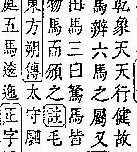 乾象天天行健故
辨六馬之屬又
馬曰駑馬皆
物馬而頒之註毛
東方朔傳太守駟
五馬逶迤正字